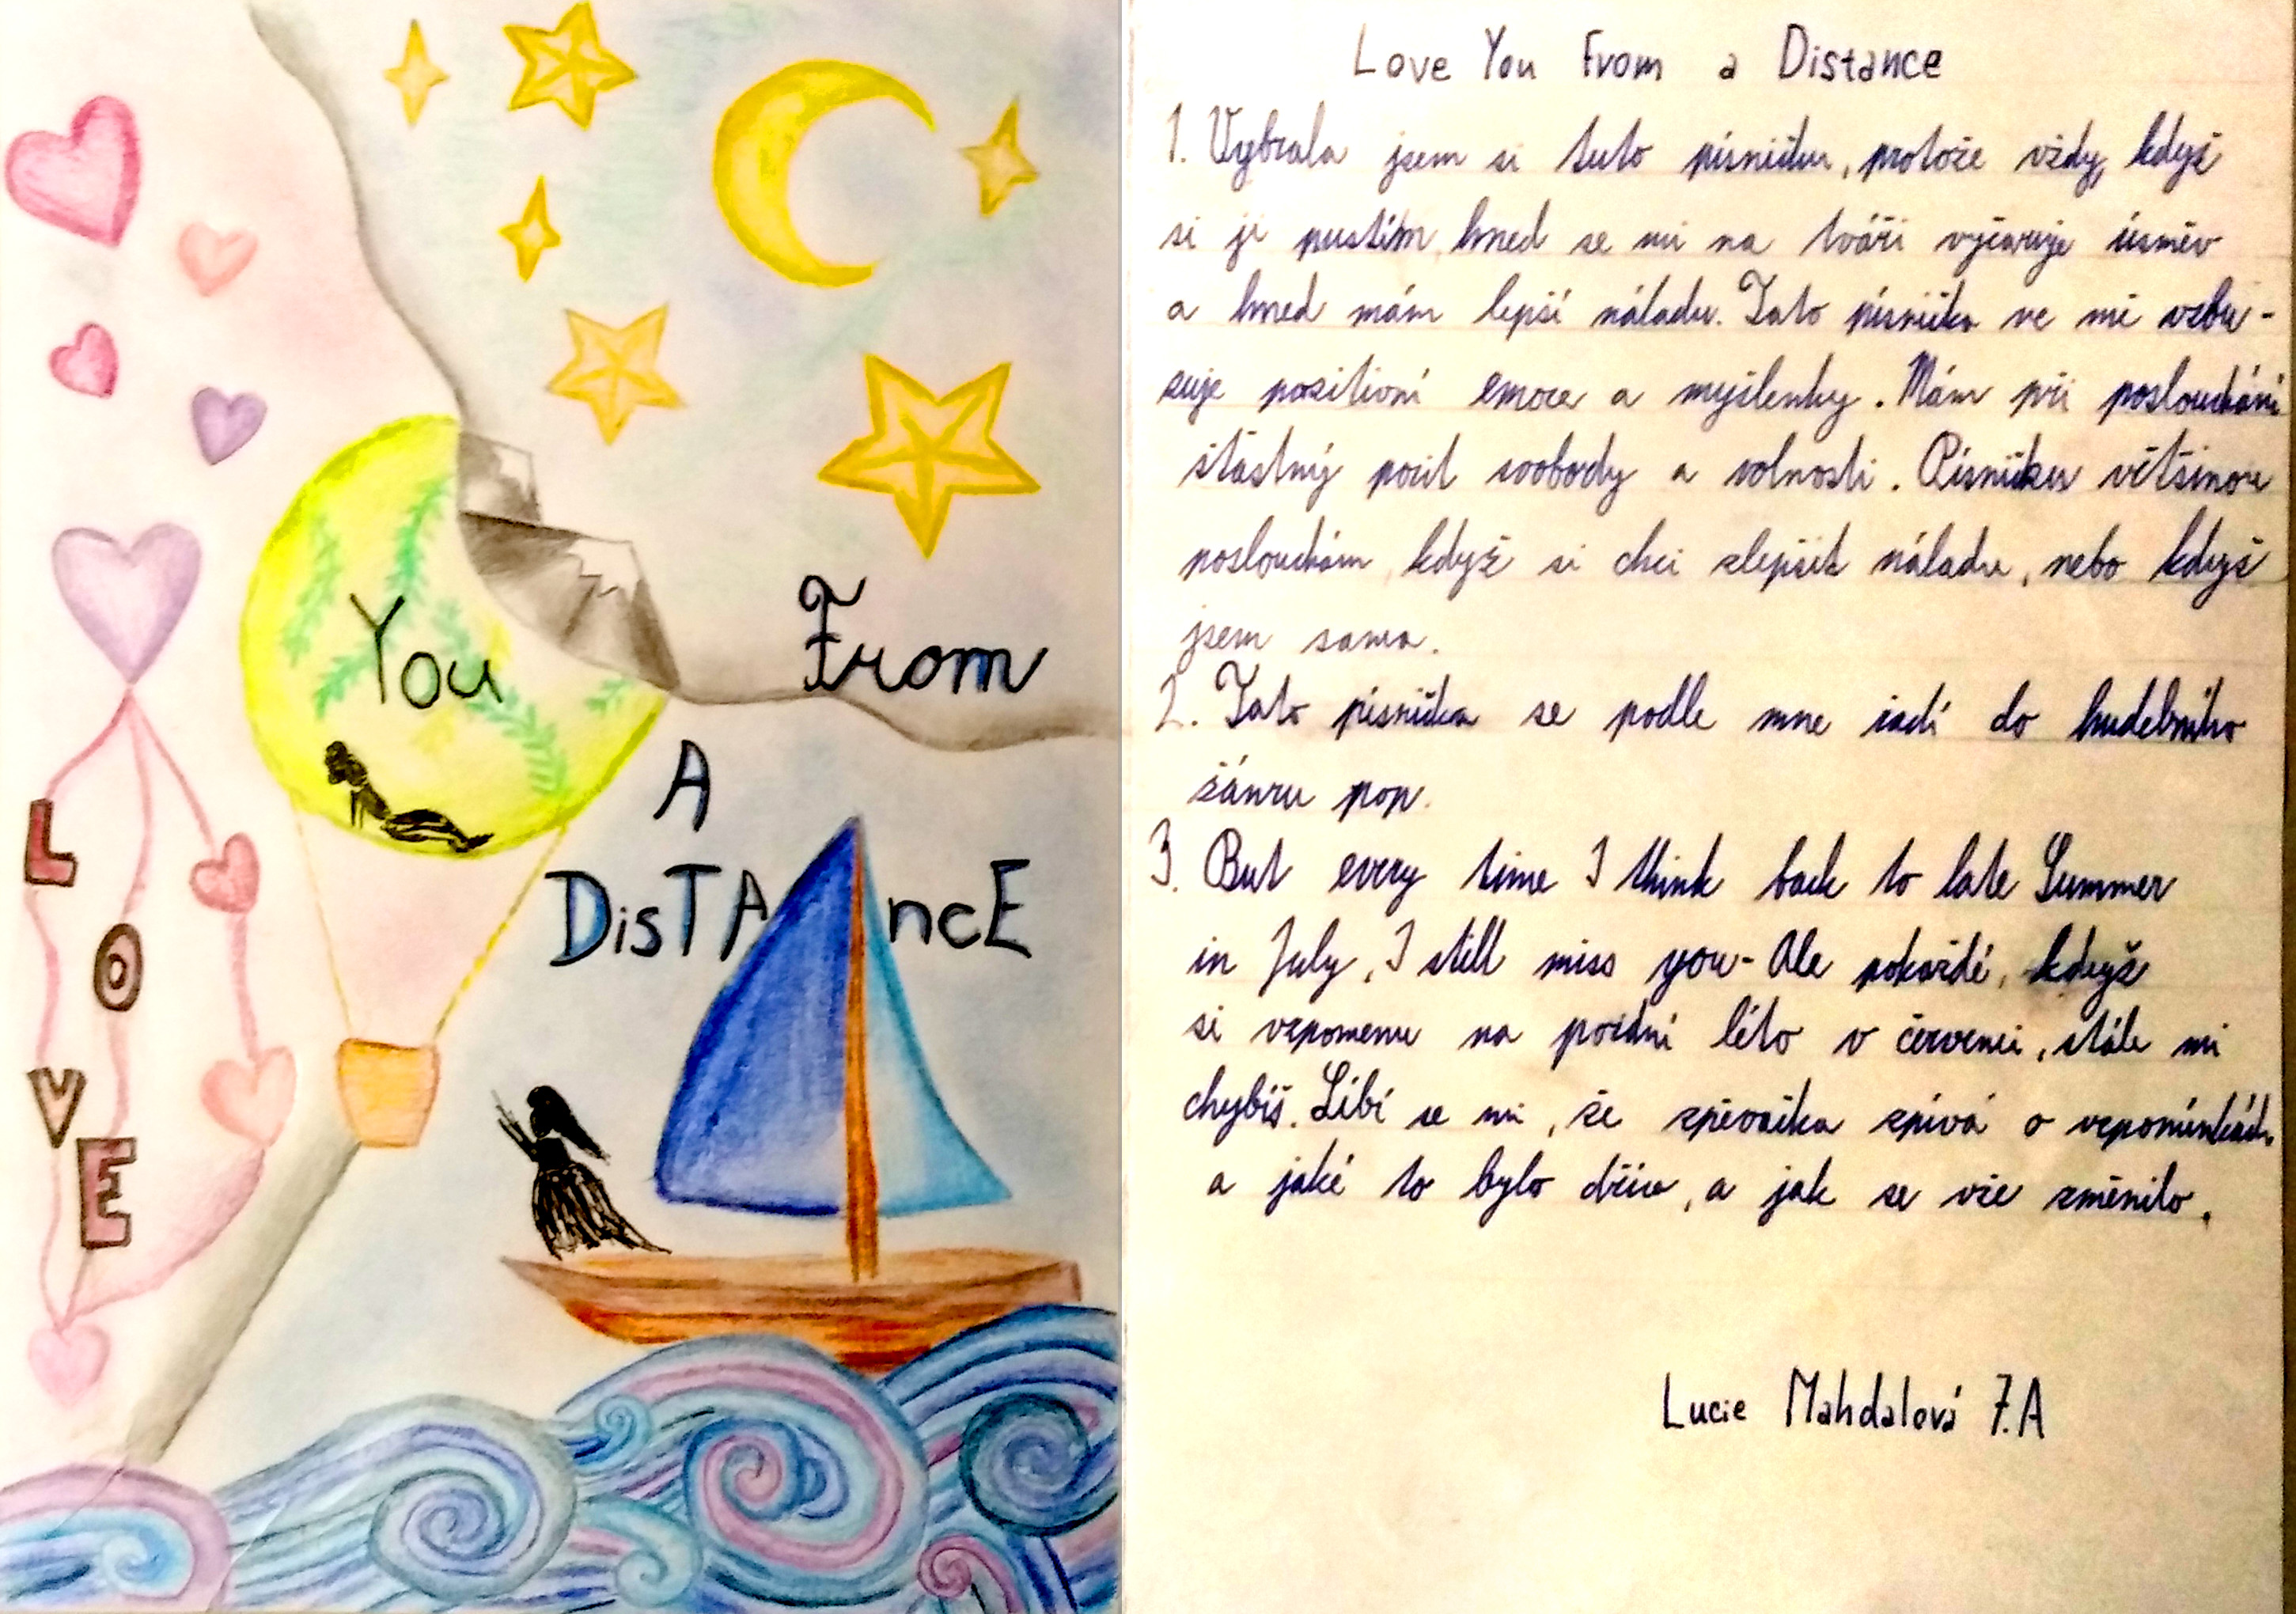 LOVE
You
From
A
DisTAncE
Love You From a Distance
1. Vybrala jsem si tuto písničku, protože vždy, když
si ji pustím, hned se mi na tváři vyčaruje úsměv
a hned mám lepší náladu. Tato písnička ve mě vzbu-
zuje pozitivní emoce a myšlenky. Mám při poslouchání
šťastný pocit svobody a volnosti. Písničku většinou
poslouchám, když si chci zlepšit náladu, nebo když
jsem sama.
2. Tato písnička se podle mne řadí do hudebního
žánru pop.
3. But every time I think back to late Summer
in July, I still miss you- Ale pokaždé, když
si vzpomenu na pozdní léto v červenci, stále mi
chybíš. Líbí se mi, že zpěvačka zpívá o vzpomínkách
a jaké to bylo dříve, a jak se vše změnilo.
Lucie Mahdalová 7.A